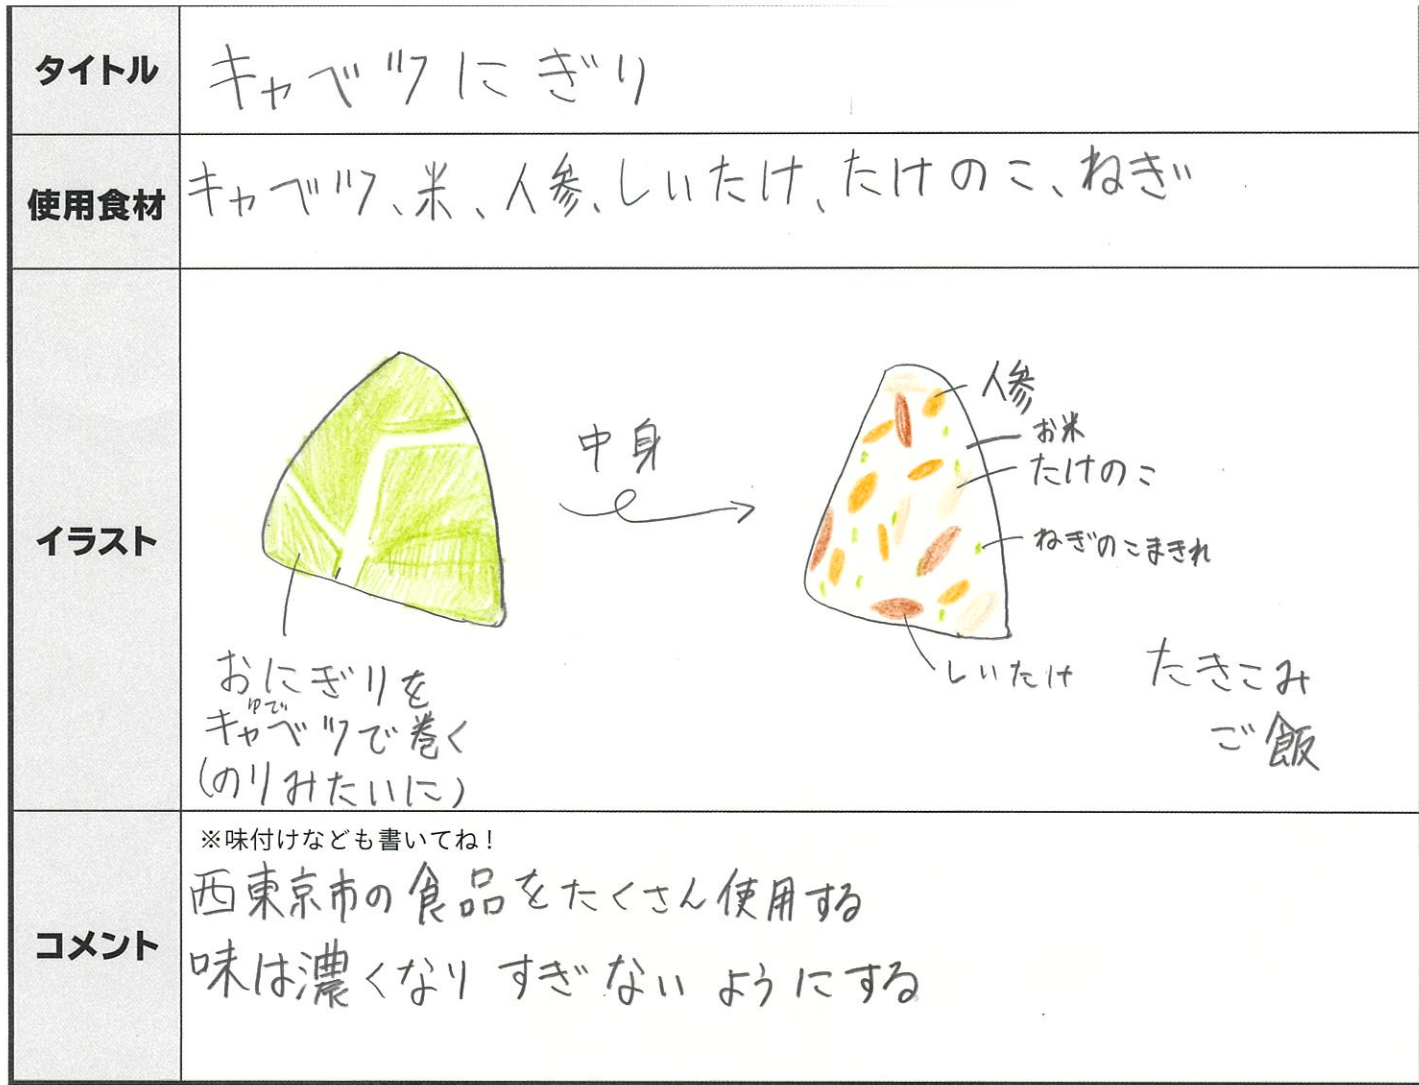 タイトル
キャベツにぎり
使用食材
キャベツ、米、人参、しいたけ、たけのこ、ねぎ
イラスト
中身
人参
お米
たけのこ
ねぎのこまきれ
しいたけ
たきこみ
ご飯
おにぎりを
ゆで
キャベツで巻く
(のりみたいに)
コメント
※味付けなども書いてね！
西東京市の食品をたくさん使用する
味は濃くなりすぎないようにする